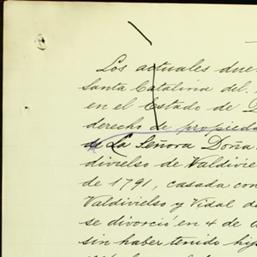 Los actuales due
Santa Catalina del
en el Estado de D
derecho de propieda
de La Señora Doña
divielso de Valdivie
de 1791, casada con
Valdivielso y Vidal de
se divorció en 4 de
sin haber tenido hij